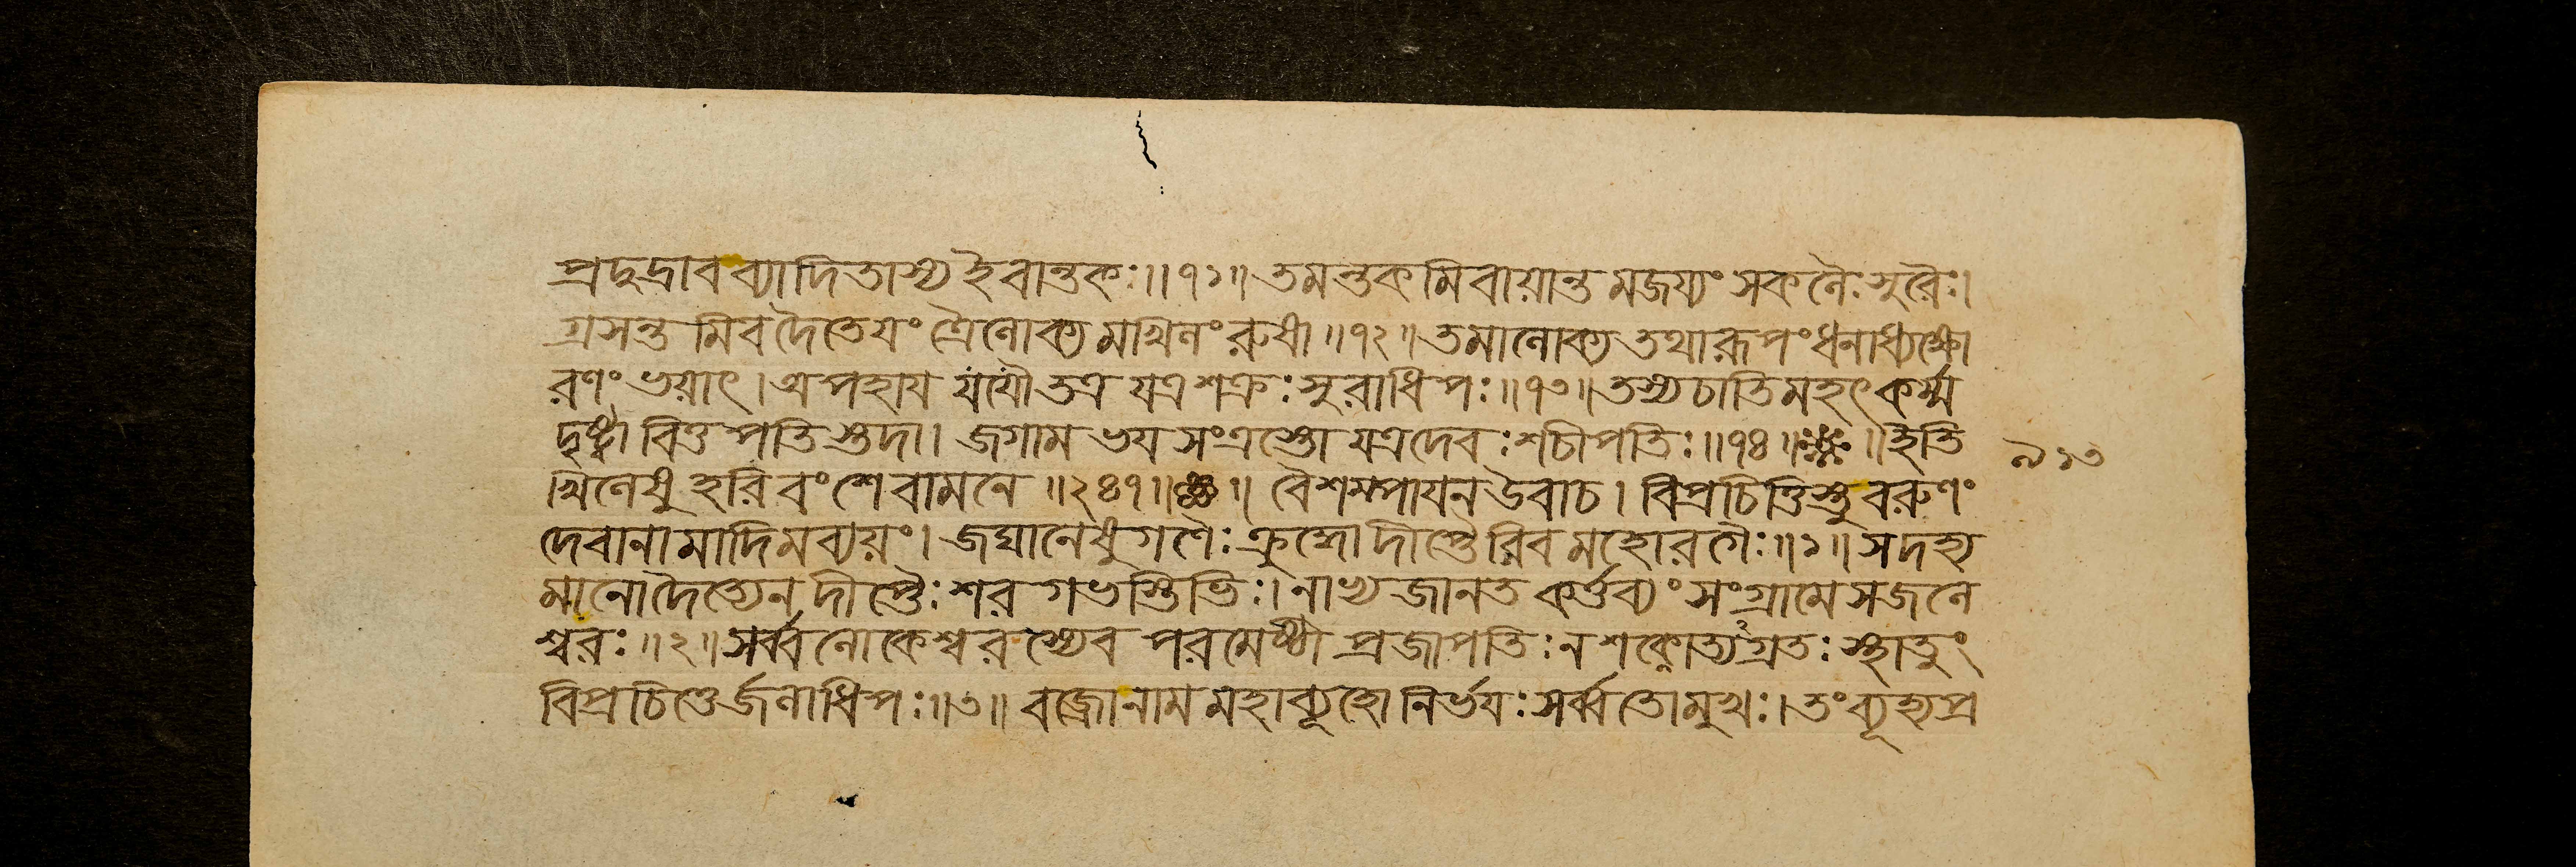 প্রদুদ্রাব ব্যাদিতাস্য ইবান্তকঃ॥৭১॥ তমন্তকমিবায়ান্তমজয্যং সকলৈঃ সুরৈঃ।
গ্রসন্তমিব দৈতেযং ত্রৈলোক্যমখিলং রুষা॥৭২॥ তমালোক্য তথারূপং ধনাধ্যক্ষো
রণং ভয়াৎ। অপহায যযৌ তত্র যত্র শক্রঃ সুরাধিপঃ॥৭৩॥ তস্য চাতিমহৎ কর্ম্ম
দৃষ্ট্বা বিত্তপতিস্তদা। জগাম ভযসংত্রস্তো যত্র দেবঃ শচীপতিঃ॥৭৪॥ ॥ইতি
খিলেষু হরিবংশে বামনে॥২৪৭॥ ॥ বৈশম্পাযন উবাচ। বিপ্রচিত্তিস্তু বরুণং
দেবানামাদিমব্যয়ং। জঘানেষুগণৈঃ ক্রুদ্ধো দীপ্তৈরিব মহোরগৈঃ॥১॥ স দহ্য
মানো দৈত্যেন দীপ্তৈঃ শরগভস্তিভিঃ। নাখ্যজানত কর্ত্তব্যং সংগ্রামে স জলে
শ্বরঃ॥২॥ সর্ব্বলোকেশ্বরস্যেব পরমেষ্ঠী প্রজাপতিঃ ন শক্নোত্যগ্রতঃ স্থাতুং
বিপ্রচিত্তের্জনাধিপঃ॥৩॥ বজ্রো নাম মহাব্যূহো নির্ভযঃ সর্ব্বতোমুখঃ। তং ব্যূহ্য প্র
৯১৩